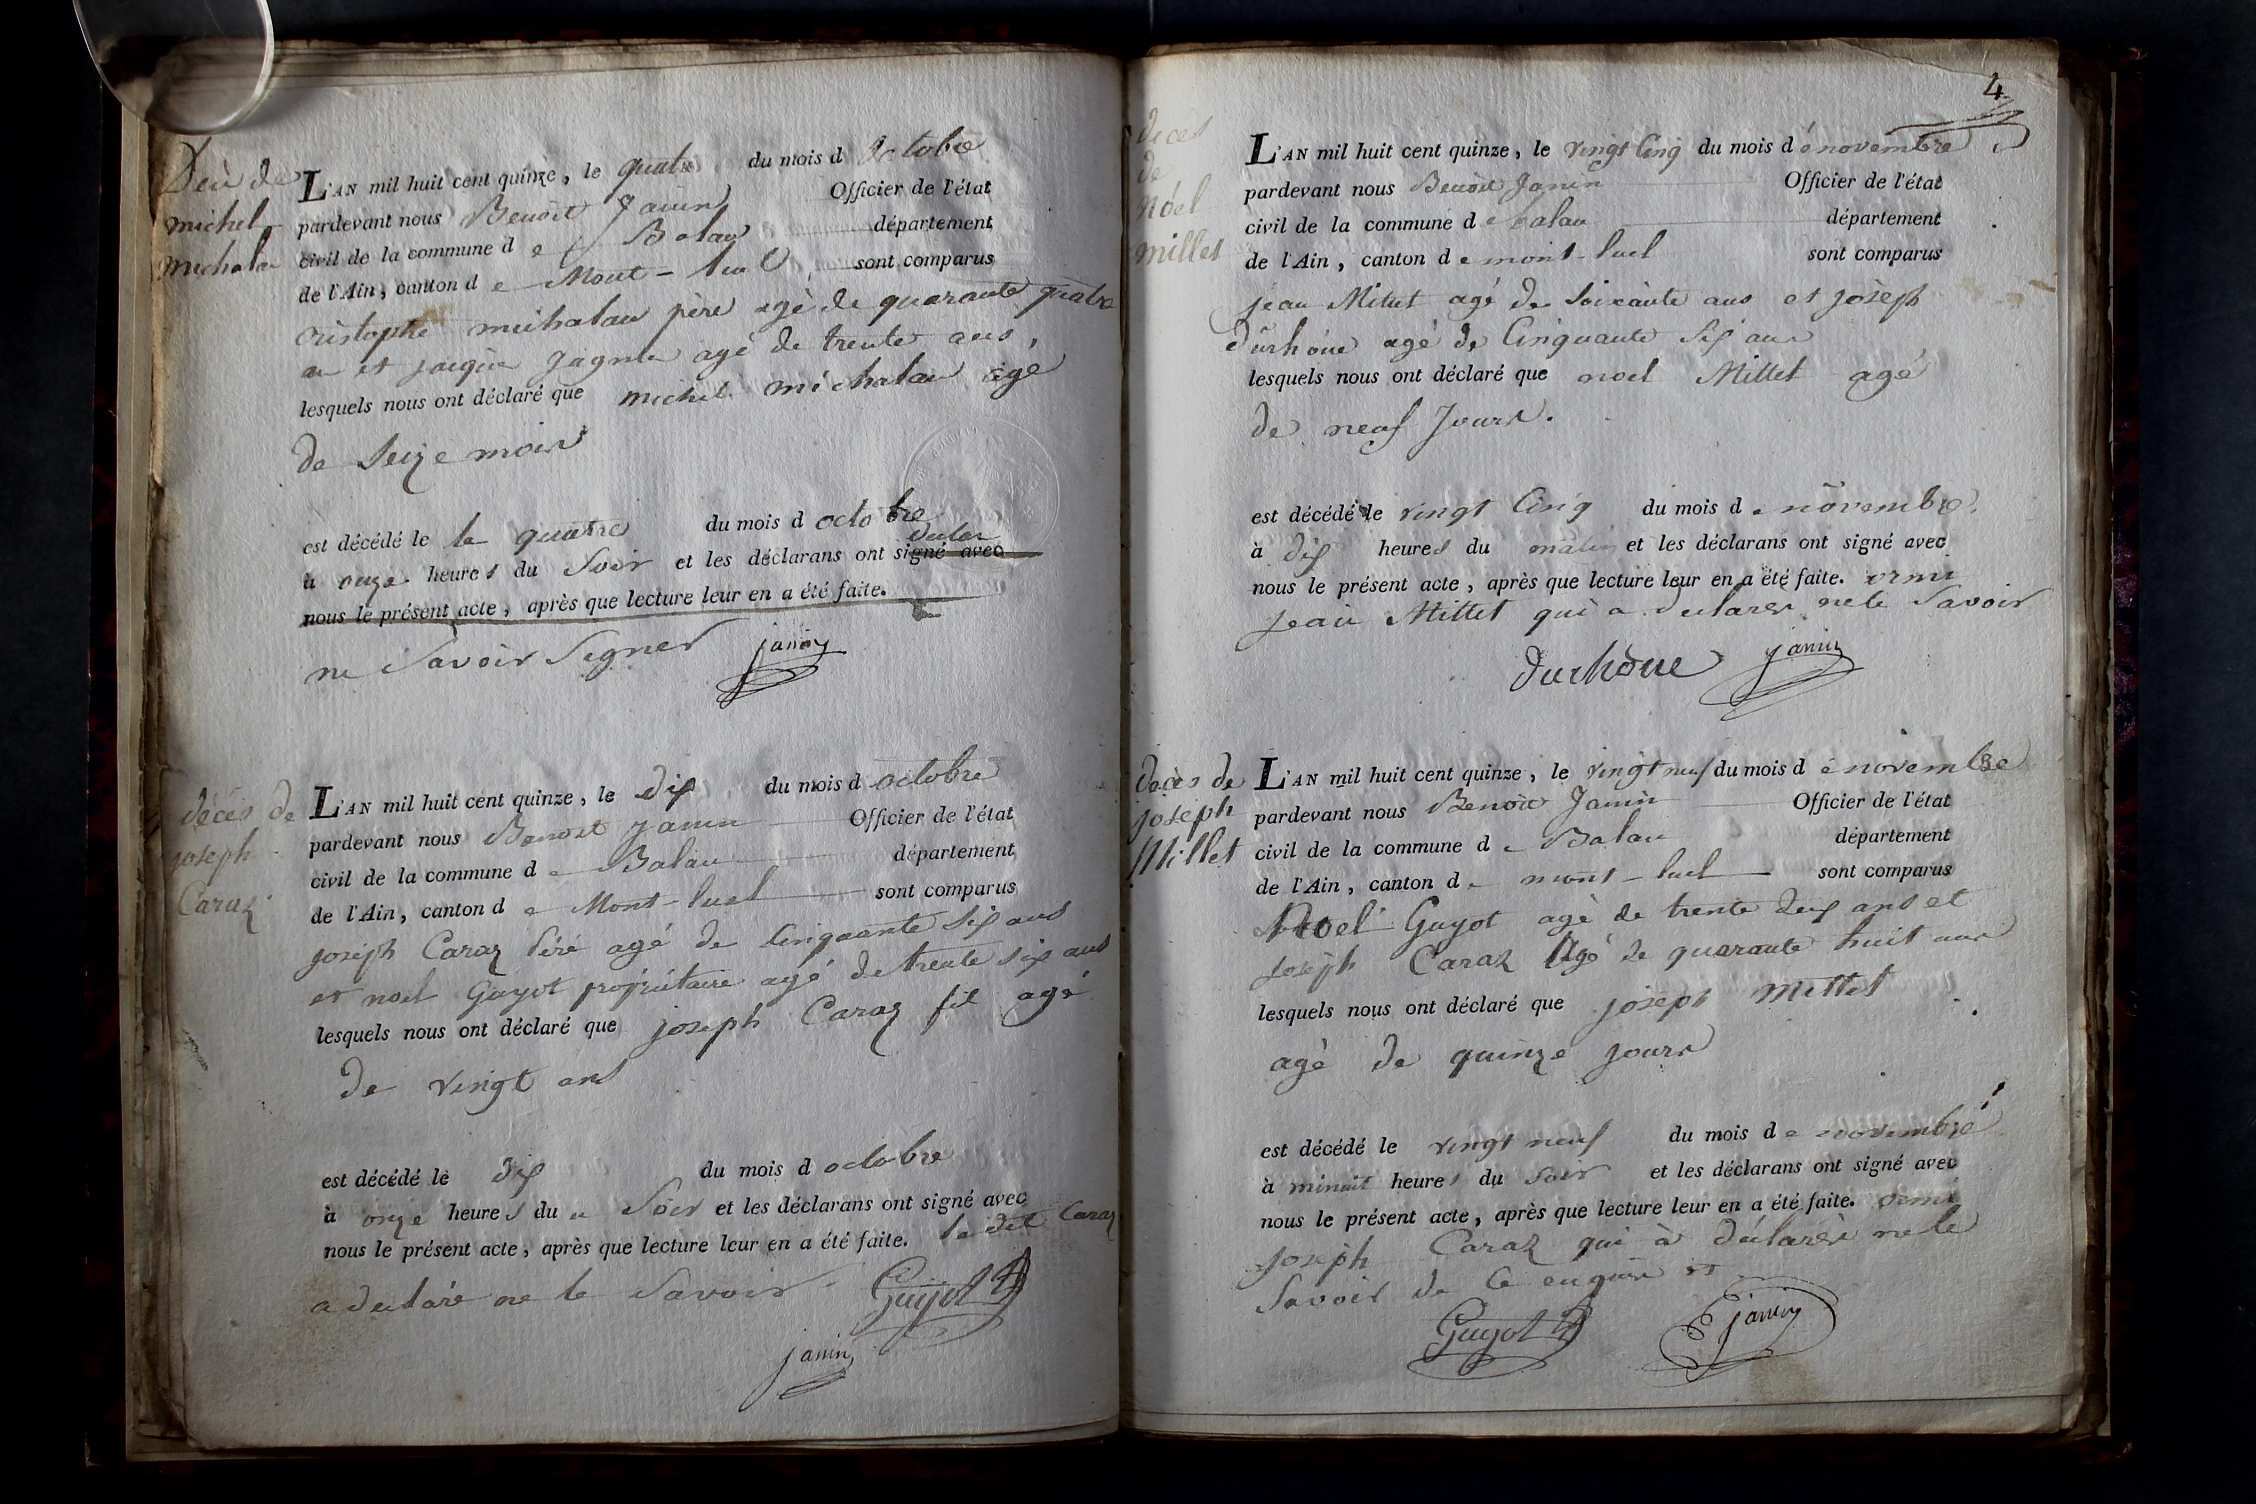 Décè de
michel
michalan
L'AN mil huit cent quinze, le quatre du mois d octobre
pardevant nous Benoit Janin Officier de l'état
civil de la commune d e Balan département
de l'Ain, canton d e Mont-luel sont comparus
cristophe michalan père agé de quarante quatre
an et jacque gagneu agé de trente ans,
lesquels nous ont déclaré que michel michalan agé
de seize mois
est décédé le le quatre du mois d octobre
à onze heures du soir et les déclarans ont signé avec
nous le présent acte, après que lecture leur en a été faite.
ne savoir signer janin
décès de
joseph
Caraz
L'AN mil huit cent quinze, le dix du mois d octobre
pardevant nous Benoit Janin Officier de l'état
civil de la commune d e Balan département
de l'Ain, canton d e Mont-luel sont comparus
joseph Caraz péré agé de cinquante six ans
et noel Guyot propriétaire agé de trente six ans
lesquels nous ont déclaré que joseph Caraz fil agé
de vingt ans
est décédé le dix du mois d octobre
à onze heures du soir et les déclarans ont signé avec
nous le présent acte, après que lecture leur en a été faite. le dit Caraz
a declaré ne le savoir Guyot
janin
4
décès
de
Nöel
millet
L'AN mil huit cent quinze, le vingt cinq du mois d é novembre
pardevant nous Benoit Janin Officier de l'état
civil de la commune d e balan département
de l'Ain, canton d e mont-luel sont comparus
jean Millet agé de soixante ans et joseph
Durhône agé de cinquante six ans
lesquels nous ont déclaré que noel Millet agé
de neuf jours.
est décédé le vingt cinq du mois d e novembre
à dix heures du matin et les déclarans ont signé avec
nous le présent acte, après que lecture leur en a été faite. ormi
jean Millet qui a declarér ne le savoir
Durhône janin
décès de
joseph
Millet
L'AN mil huit cent quinze, le vingt neuf du mois d e novembre
pardevant nous Benoit Janin Officier de l'état
civil de la commune d e Balan département
de l'Ain, canton d e mont-luel sont comparus
Noel Guyot agé de trente deux ans et
joseph Caraz Agé de quarante huit ans
lesquels nous ont déclaré que joseph Millet
agé de quinze jours
est décédé le vingt neuf du mois d e novembre
à minuit heures du soir et les déclarans ont signé avec
nous le présent acte, après que lecture leur en a été faite. ormi
joseph Caraz qui à déclarér ne le
savoir de ce enquis
Guyot janin